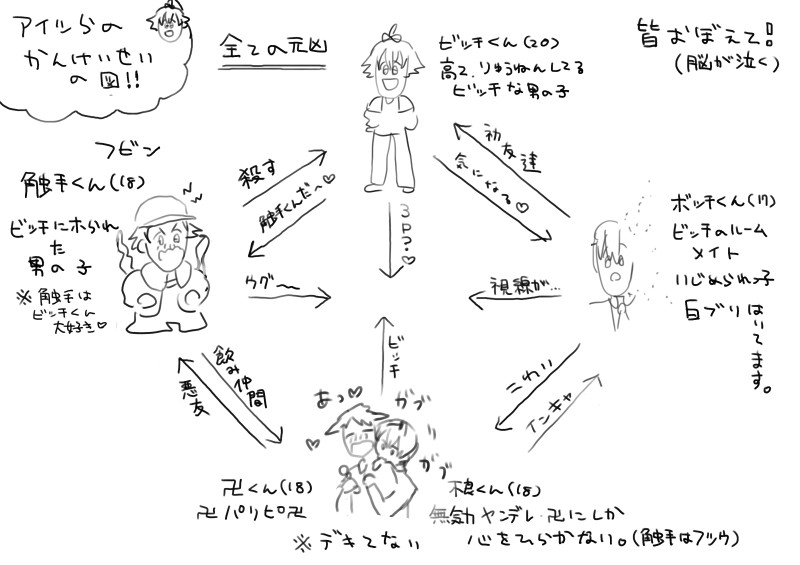 アイツらの
かんけいせい
の図!!
全ての元凶
ビッチくん(20)
高2.りゅうねんしてる
ビッチな男の子
皆おぼえて!
(脳が泣く)
フビン
触手くん(18)
ビッチにホられ
た
男の子
※触手は
ビッチくん
大好き♡
殺す
触手くんだ〜♡
初友達
気になる♡
3P?♡
ボッチくん(17)
ビッチのルーム
メイト
いじめられっ子
白ブリはいてます。
ウグ〜
視線が…
ビッチ
飲み仲間
悪友
こわい
インキャ
あっ♡
ガブ
ガブ
卍くん(18)
卍パリピ卍
くん(18)
無効ヤンデレ・卍にしか
心をひらかない。(触手はフツウ)
※デキてない